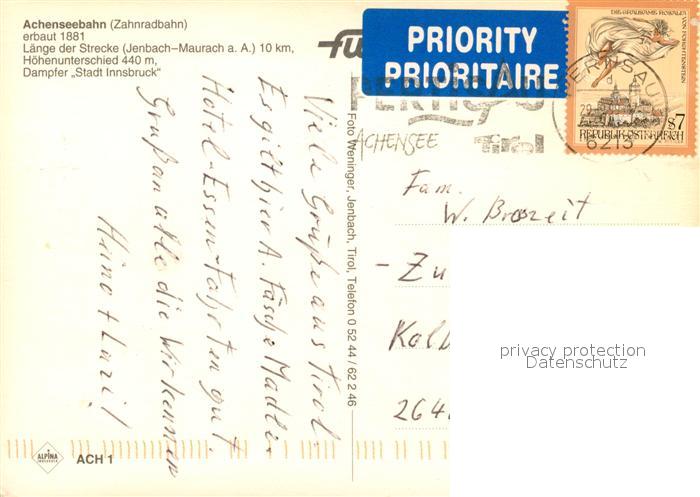 Achenseebahn (Zahnradbahn)
erbaut 1881
Länge der Strecke (Jenbach–Maurach a. A.) 10 km,
Höhenunterschied 440 m,
Dampfer „Stadt Innsbruck"
Viele Grüße aus Tirol
Es gilt hier A. Fasche Madle.
Hotel-Essen-Fahrten gut.
Gruß an alle die Wir kennen
Heino + Luzi!
ALPINA
ACH 1
Foto Weninger, Jenbach, Tirol, Telefon 0 52 44 / 62 2 46
PRIORITY
PRIORITAIRE
PERTISAU
ACHENSEE
Tirol
PERTISAU
6213
DIE GRAUSAME ROSALIA
VON FORCHTENSTEIN
S7
REPUBLIK ÖSTERREICH
Fam.
W. Broszeit
- Zu
Kolb
264
privacy protection
Datenschutz